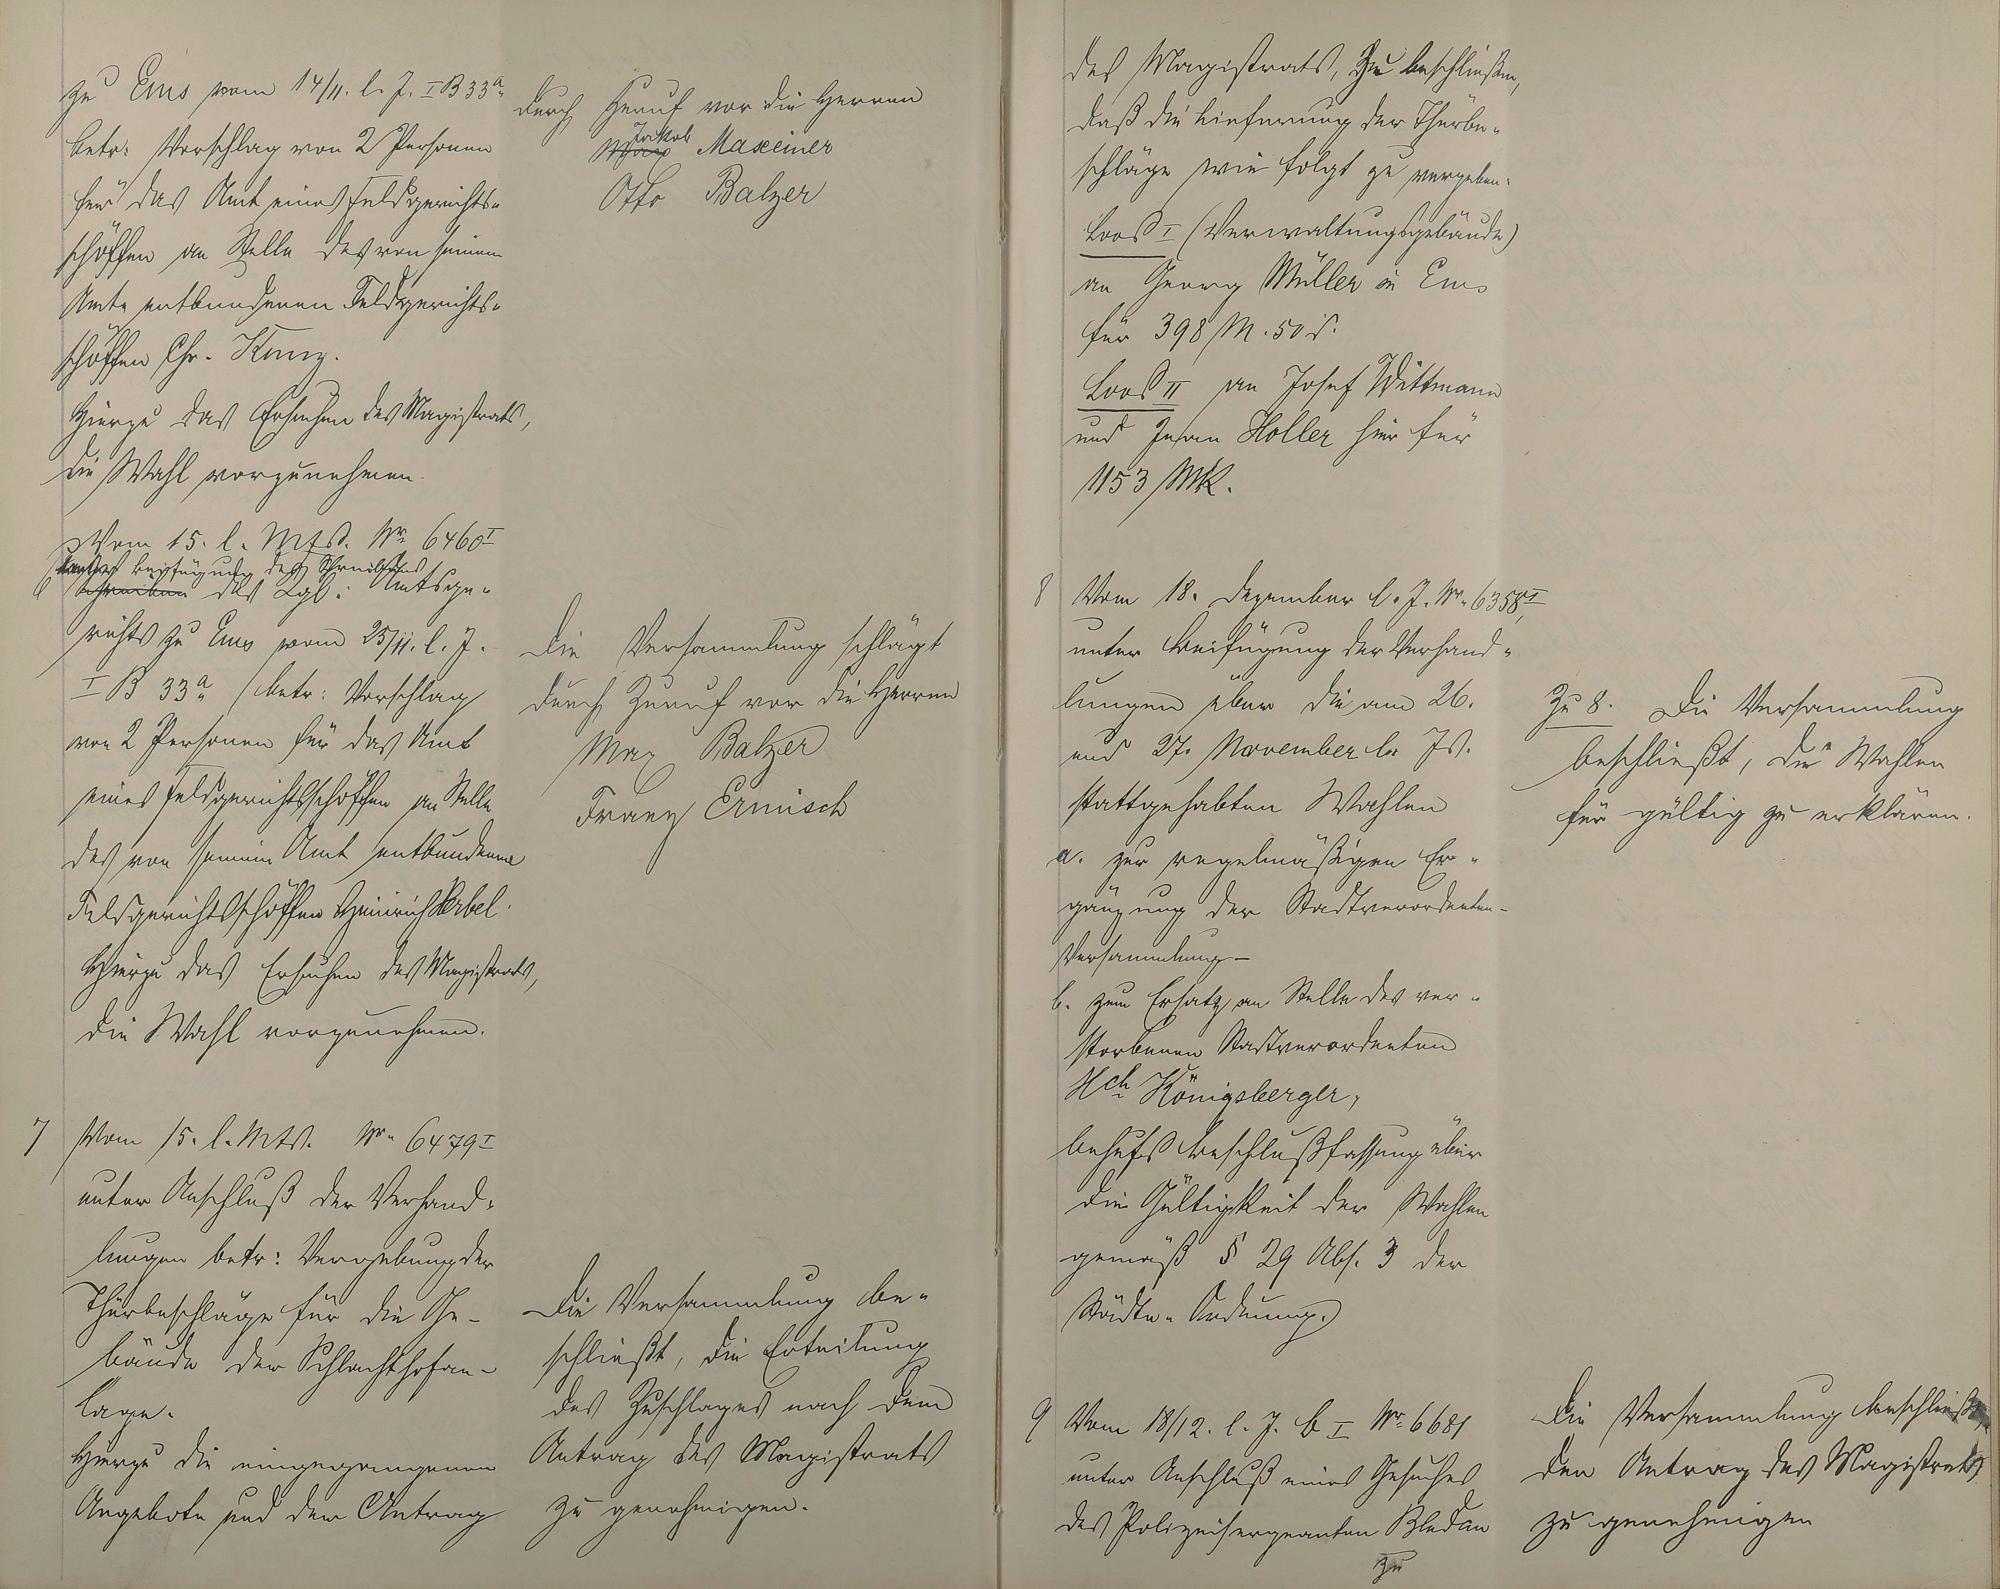 zu Ems vom 14/11. l. J. I B 33a.
betr: Vorschlag von 2 Personen
für das Amt eines Feldgerichts-
schöffen an Stelle des von seinem
Amte entbundenen Feldgerichts-
schöffen Chr. Kunz.
Hierzu das Ersuchen des Magistrats,
die Wahl vorzunehmen.
durch Zuruf vor die Herren
Jakob
Maxeiner
Otto Balzer
6 Vom 15. l. Mts. Nr. 6460 I
unter Beifügung des Schreibens
des Kgl: Amtsge-
richts zu Ems vom 25/11. l. J.
I B 33a betr: Vorschlag
von 2 Personen für das Amt
eines Feldgerichtsschöffen an Stelle
des von seinem Amt entbundenen
Feldgerichtsschöffen Heinrich
Hierzu das Ersuchen des Magistrats,
die Wahl vorzunehmen.
Die Versammlung schlägt
durch Zuruf vor die Herren
Max Balzer
Franz Ermisch
7 Vom 15. l. Mts. Nr. 6479 I
unter Anschluß der Verhand-
lungen betr: Vergebung der
Thürbeschläge für die Ge-
bäude der Schlachthofan-
lage.
Hierzu die eingegangenen
Angebote und den Antrag
Die Versammlung be-
schließt, die Erteilung
des Zuschlages nach dem
Antrag des Magistrats
zu genehmigen.
des Magistrats, zu beschließen,
daß die Lieferung der Thürbe-
schläge wie folgt zu vergeben.
Loos I (Verwaltungsgebäude)
an Georg Müller in Ems
für 398 M. 50 d.
Loos II an Josef Wittmann
und Johan Holler hier für
1153 Mk.
8 Vom 18. Dezember l. J. Nr. 6358 I,
unter Beifügung der Verhand-
lungen über die am 26.
und 27. November l. Js.
stattgehabten Wahlen
a. zur regelmäßigen Er-
gänzung der Stadtverordneten-
Versammlung –
b. zum Ersatz an Stelle des ver-
storbenen Stadtverordneten
Hch. Königsberger,
behufs Beschlußfassung über
die Gültigkeit der Wahlen
gemäß § 29 Abs. 3 der
Städte-Ordnung.
Zu 8. Die Versammlung
beschließt, die Wahlen
für gültig zu erklären.
9 Vom 18/12. l. J. b I Nr. 6681
unter Anschluß eines Gesuches
des Polizeisergeanten Bledau
zu
Die Versammlung beschließt,
den Antrag des Magistrats
zu genehmigen